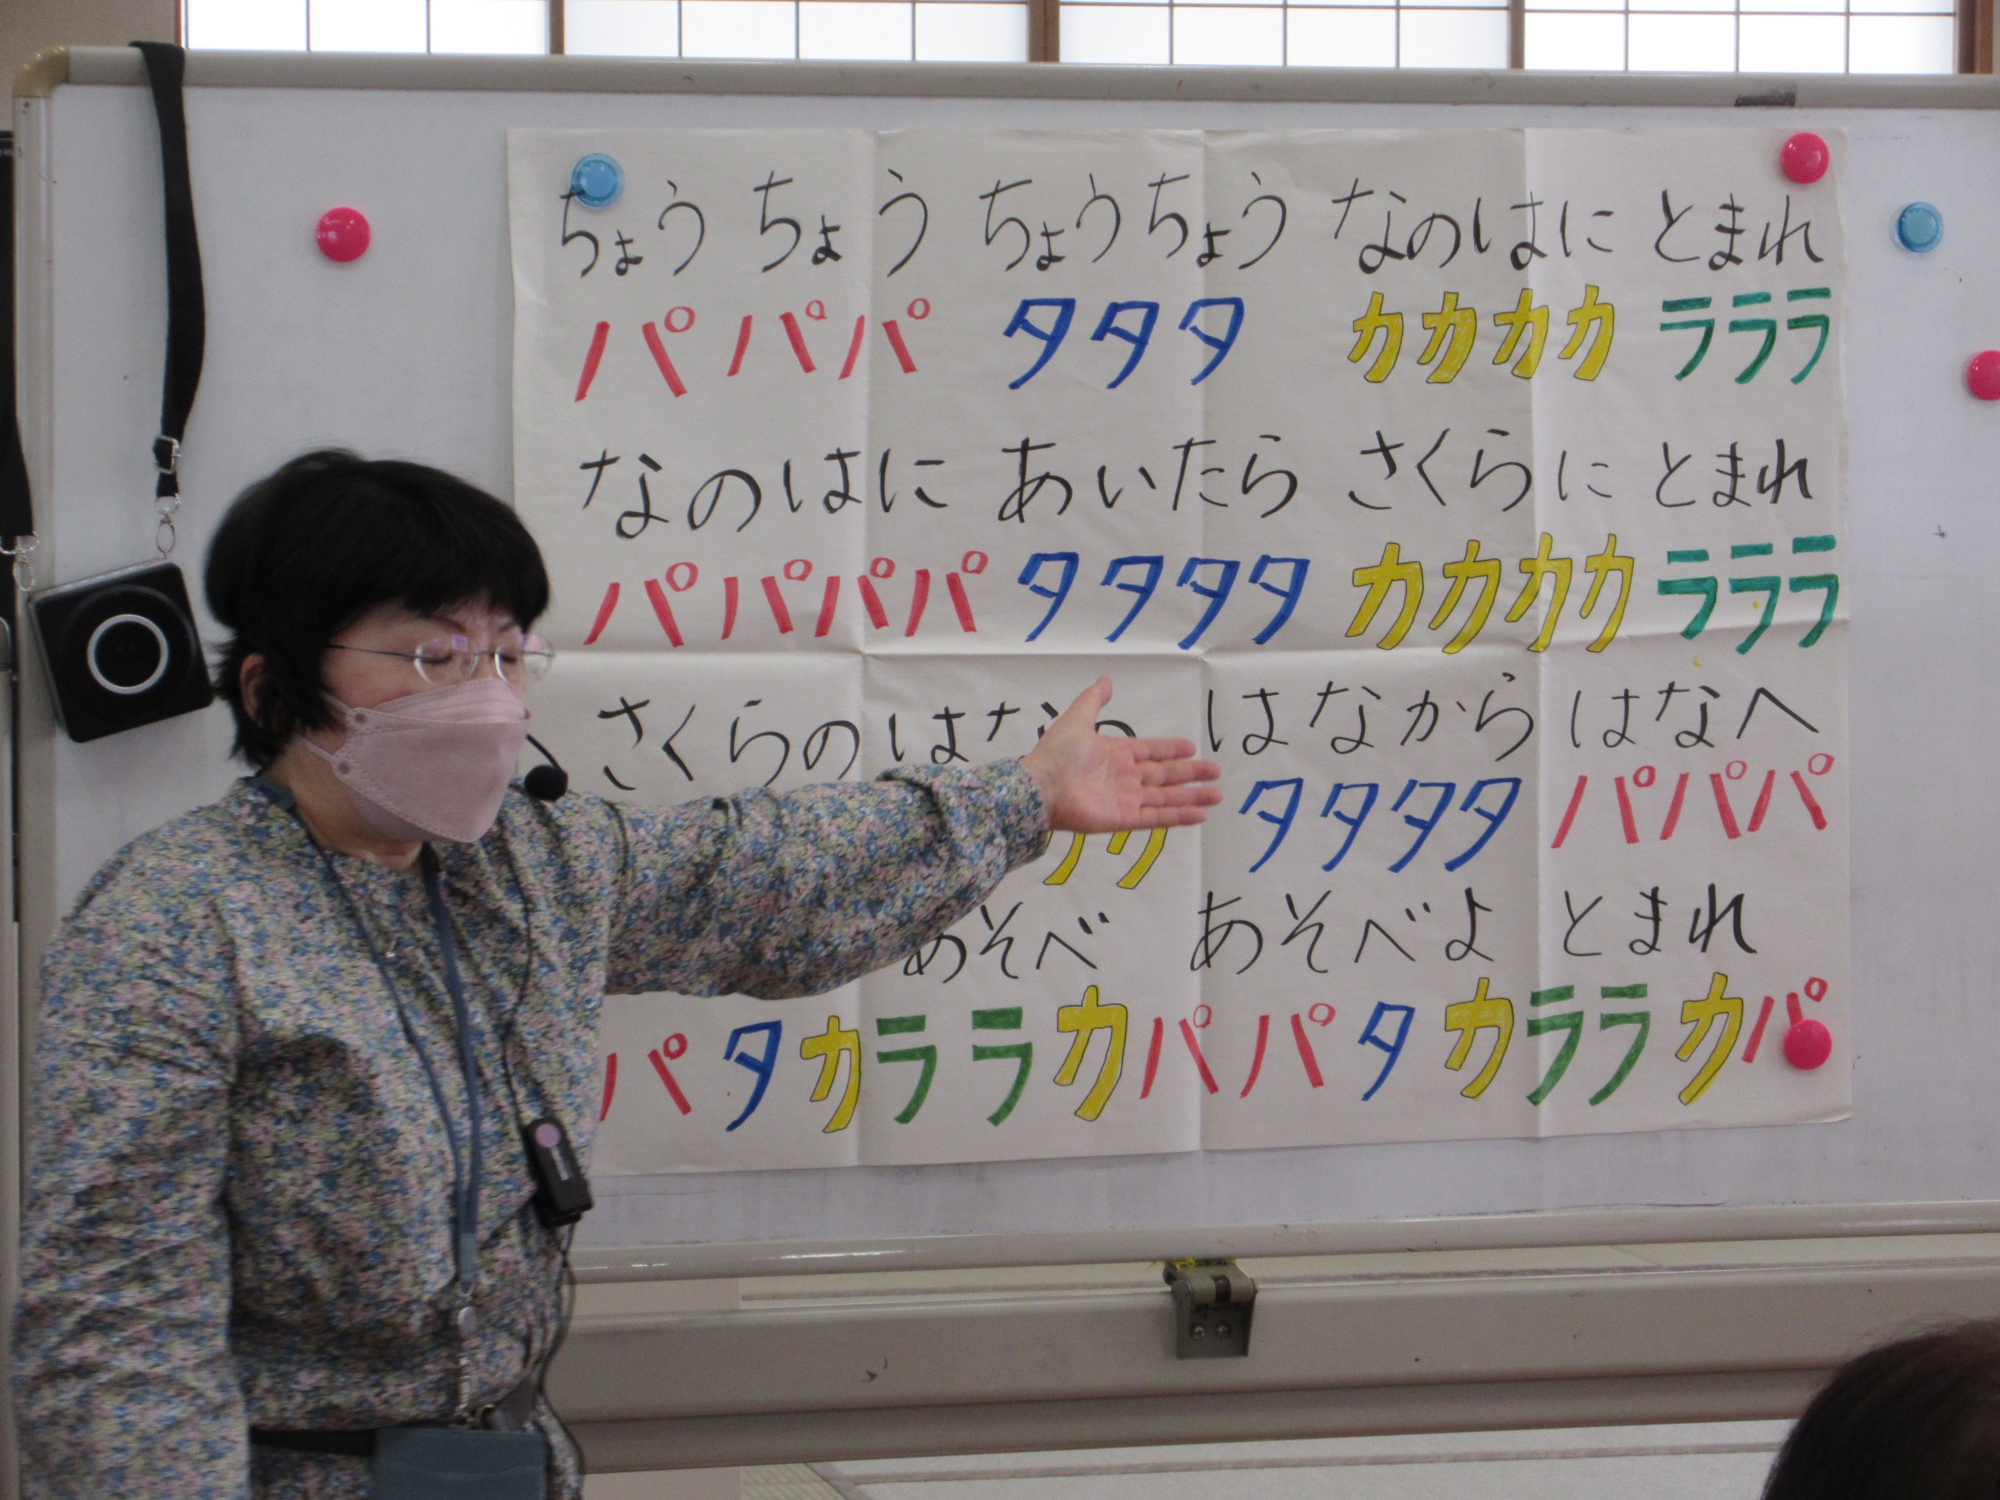 ちょう ちょう ちょうちょう なのはに とまれ
パ パパ タタタ カカカカ ラララ
なのはに あいたら さくらに とまれ
パパパパ タタタタ カカカカ ラララ
さくらの はなの はなから はなへ
タタタタ パパパ
あそべ あそべよ とまれ
パタカララカパパタカララカパ